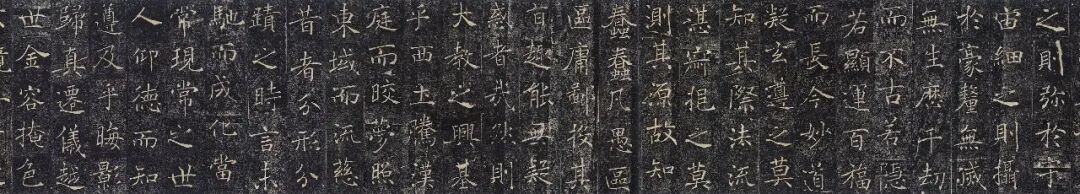 之則弥於宇
宙細之則攝
於豪釐無滅
無生歷千劫
而不古若隱
若顯運百福
而長今妙道
凝玄遵之莫
知其際法流
湛寂挹之莫
測其源故知
蠢蠢凡愚區
區庸鄙投其
旨趣能無疑
惑者哉然則
大教之興基
乎西土騰漢
庭而皎夢照
東域而流慈
昔者分形分
蹟之時言未
馳而成化當
常現常之世
人仰德而知
遵及乎晦影
歸真遷儀越
世金容掩色